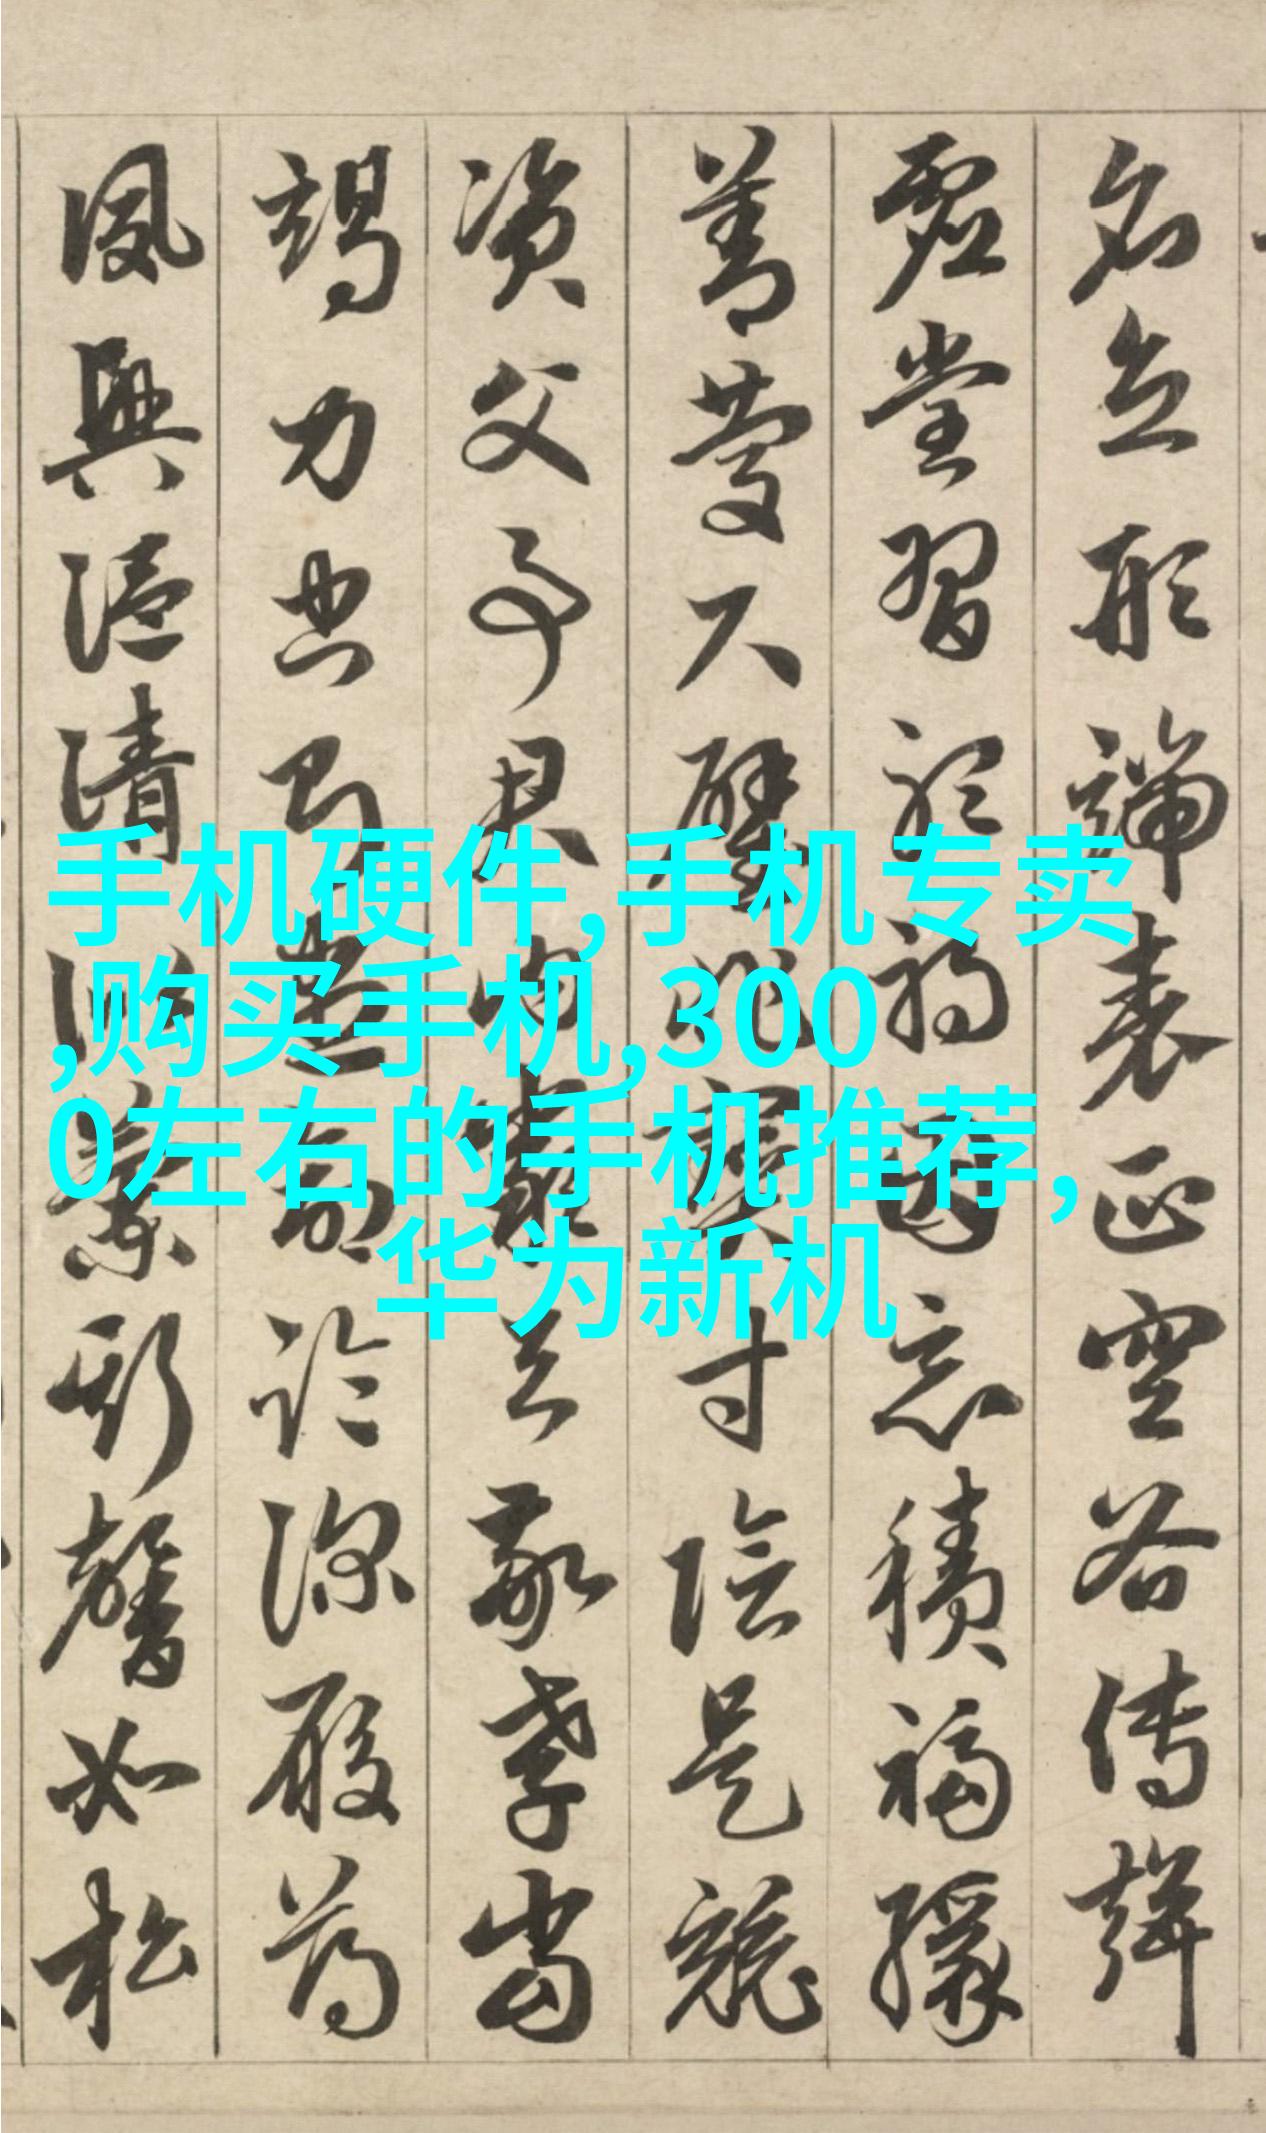 名立形端表正空谷傳聲
虛堂習聽禍因惡積福緣
善慶尺璧非寶寸陰是競
資父事君曰嚴與敬孝當
竭力忠則盡命臨深履薄
夙興溫清似蘭斯馨如松
手机硬件,手机专卖
,购买手机,300
0左右的手机推荐,
华为新机